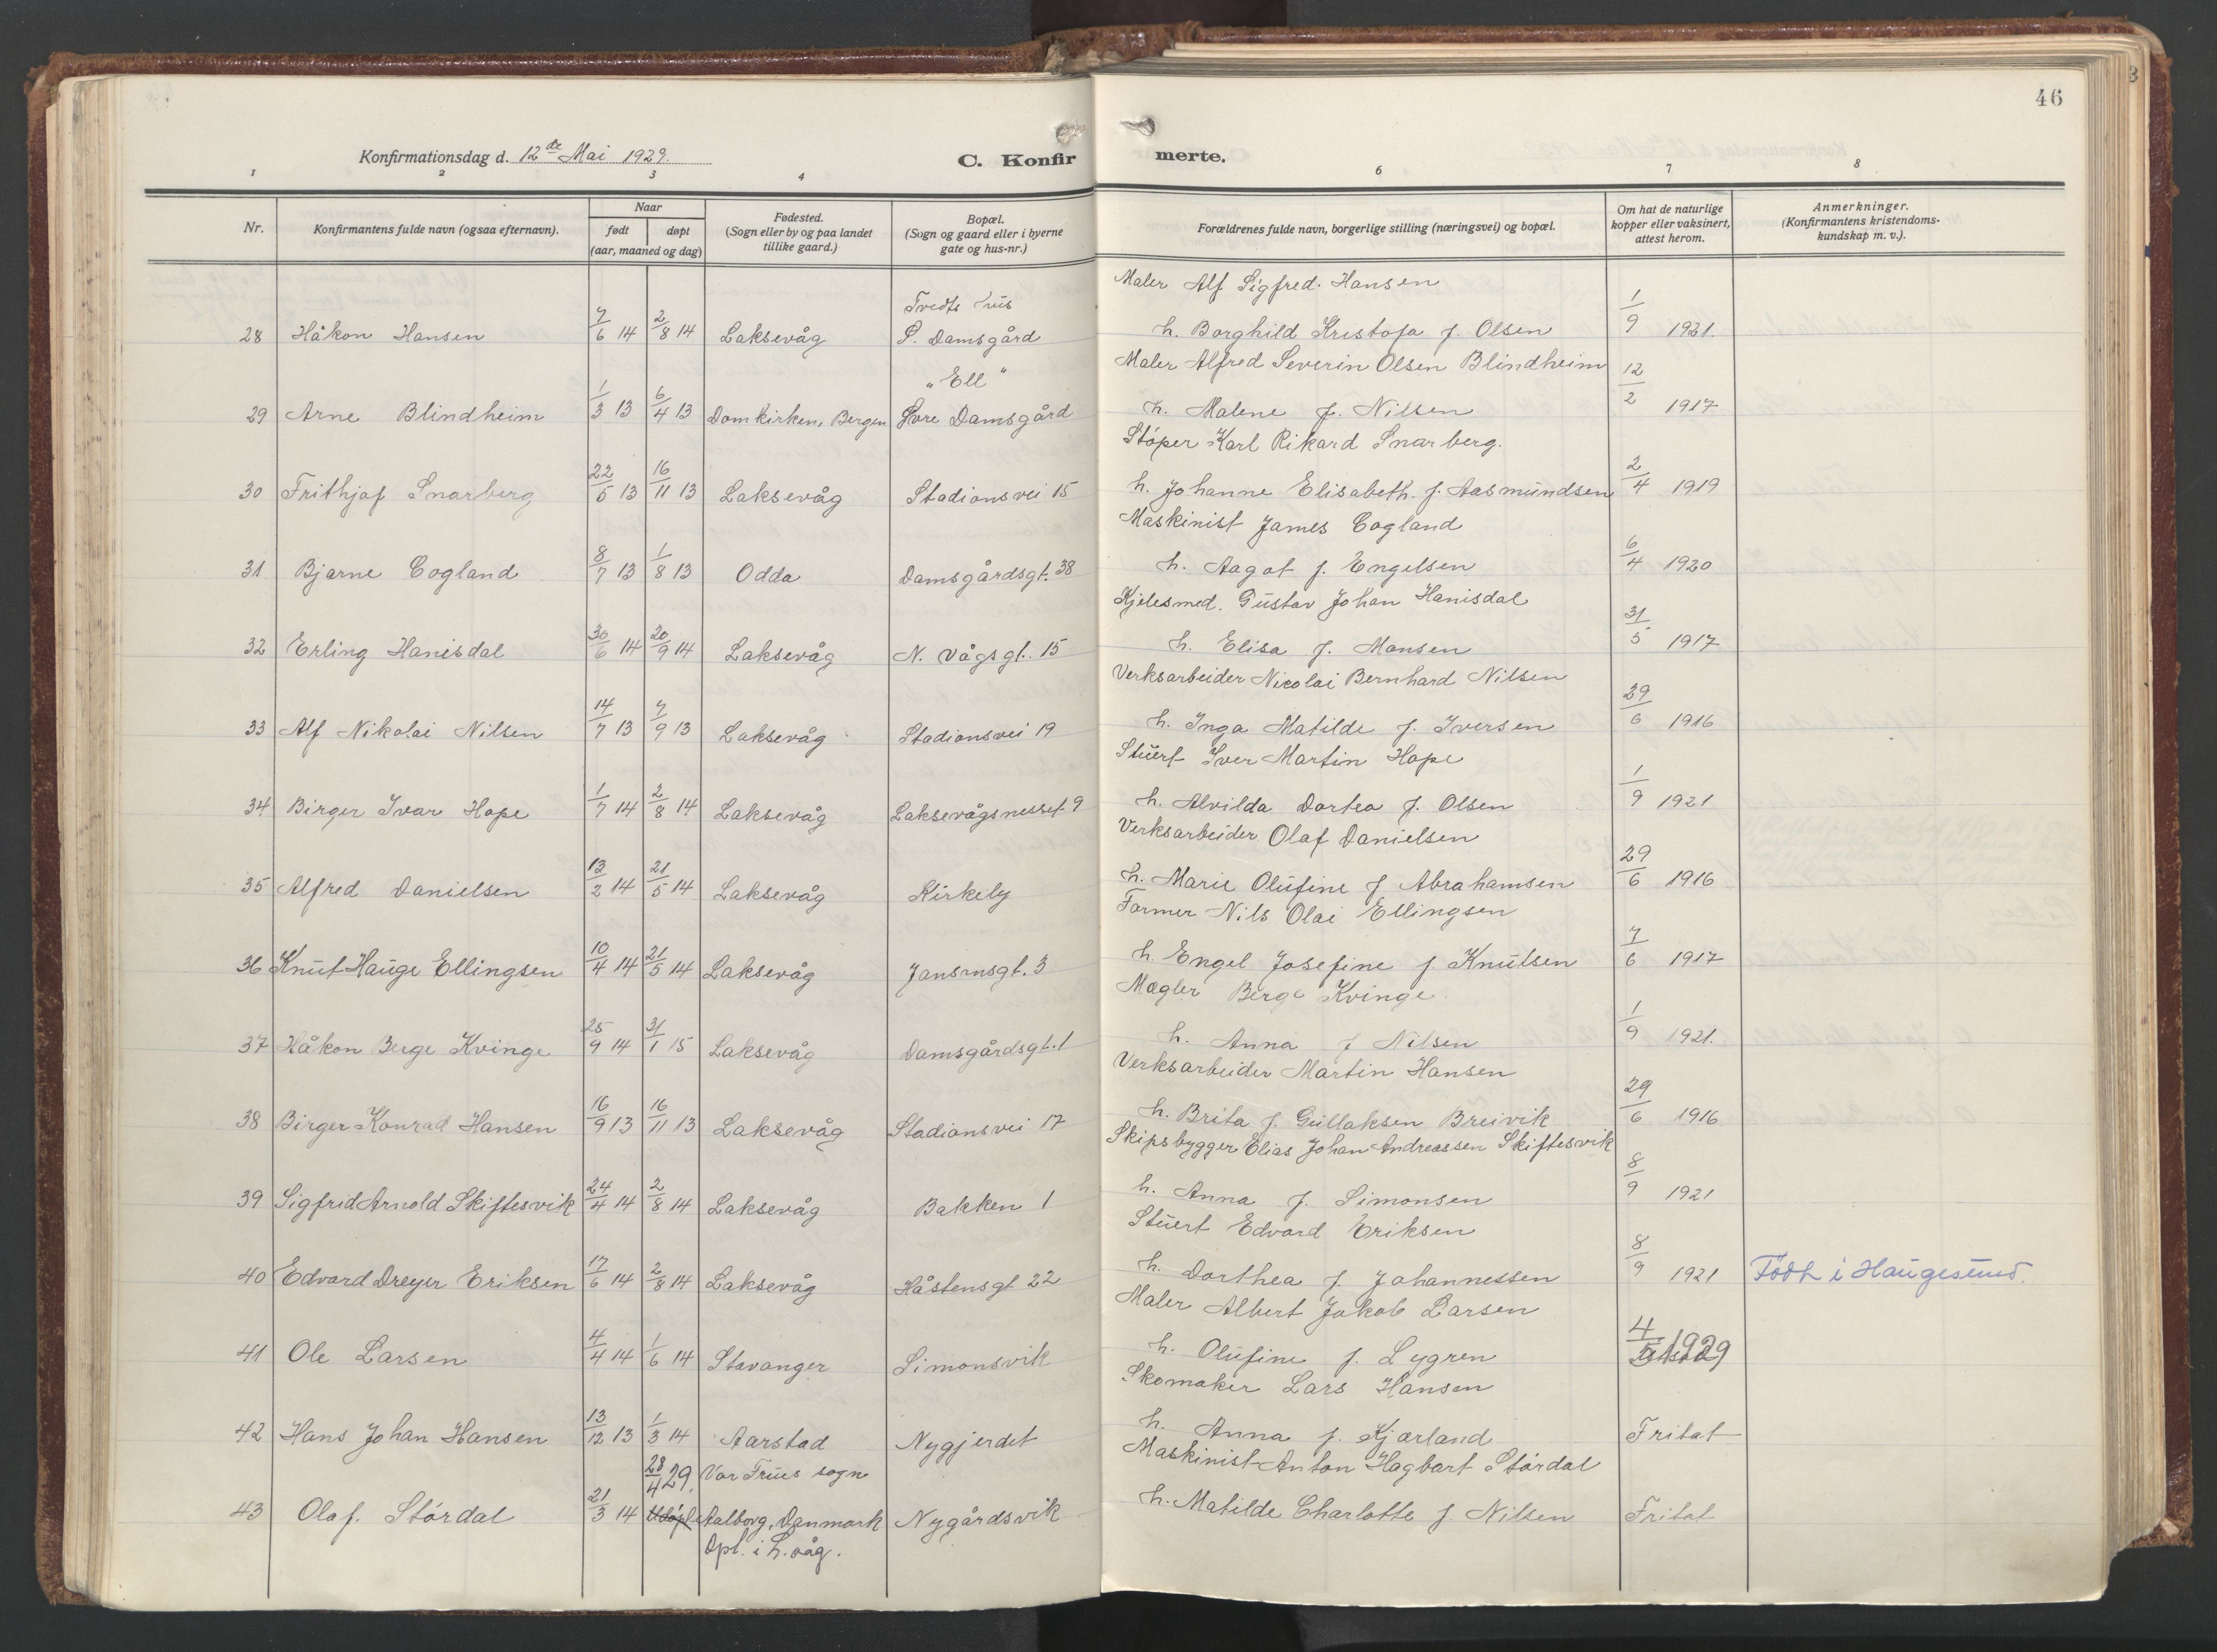 46
Konfirmationsdag d. 12de Mai 1929.
C. Konfirmerte.
1 2 3 4 6 7 8
Nr.
Konfirmantens fulde navn (ogsaa efternavn).
Naar
født døpt
(aar, maaned og dag)
Fødested.
(Sogn eller by og paa landet
tillike gaard.)
Bopæl.
(Sogn og gaard eller i byerne
gate og hus-nr.)
Forældrenes fulde navn, borgerlige stilling (næringsvei) og bopæl.
Om hat de naturlige
kopper eller vaksinert,
attest herom.
Anmerkninger.
(Konfirmantens kristendoms-
kundskap m. v.).
Tvedts hus Maler Alf Sigfred. Hansen
28 Håkon Hansen 7/6 14 2/8 14 Laksevåg S. Damsgård h. Borghild Kristofa f. Olsen 1/9 1921.
"Ell" Maler Alfred Severin Olsen Blindheim
29 Arne Blindheim 1/3 13 6/4 13 Domkirken, Bergen Øvre Damsgård h. Malene f. Nilsen 12/2 1917
Støper Karl Rikard Snarberg.
30 Frithjof Snarberg 22/5 13 16/11 13 Laksevåg Stadionsvei 15 h. Johanne Elisabeth. f. Aasmundsen 2/4 1919
Maskinist James Cogland
31 Bjarne Cogland 8/7 13 1/8 13 Odda Damsgårdsgt. 38 h. Aagot f. Engelsen 6/4 1920
Kjelesmed. Gustav Johan Hanisdal
32 Erling Hanisdal 30/6 14 20/9 14 Laksevåg N. Vågsgt. 15 h. Elisa f. Monsen 31/5 1917
Verksarbeider Nicolai Bernhard Nilsen
33 Alf Nikolai Nilsen 14/7 13 7/9 13 Laksevåg Stadionsvei 19 h. Inga Matilde f. Iversen 29/6 1916
Stuert Iver Martin Hope
34 Birger Ivar Hope 1/7 14 2/8 14 Laksevåg Laksevågsnesset 9 h. Alvilda Dortea f. Olsen 1/9 1921
Verksarbeider Olaf Danielsen
35 Alfred Danielsen 13/2 14 21/5 14 Laksevåg Kirkely h. Marie Olufine f Abrahamsen 29/6 1916
Former Nils Olai Ellingsen
36 Knut Hauge Ellingsen 10/4 14 21/5 14 Laksevåg Jansensgt. 3 h Engel Josefine f. Knutsen 7/6 1917
Mægler Berge Kvinge
37 Håkon Berge Kvinge 25/9 14 31/1 15 Laksevåg Damsgårdsgt. 1 h. Anna f Nilsen 1/9 1921.
Verksarbeider Martin Hansen
38 Birger Konrad Hansen 16/9 13 16/11 13 Laksevåg Stadionsvei 17 h. Brita f. Gullaksen Breivik 29/6 1916
Skipsbygger Elias Johan Andreassen Skiftesvik
39 Sigfrid Arnold Skiftesvik 24/4 14 2/8 14 Laksevåg Bakken 1 h. Anna f. Simonsen 8/9 1921
Stuert Edvard Eriksen
40 Edvard Dreyer Eriksen 17/6 14 2/8 14 Laksevåg Håstensgt 22 h. Dorthea f. Johannessen 8/9 1921 Födt i Haugesund.
Maler Albert Jakob Larsen
41 Ole Larsen 4/4 14 1/6 14 Stavanger Simonsvik h. Olufine f. Lygren 4/5 1929
Skomaker Lars Hansen
42 Hans Johan Hansen 13/12 13 1/3 14 Aarstad Nygjerdet h. Anna f. Kjærland Fritat
28/4 29. Vor Frues sogn Maskinist Anton Hagbart Størdal
43 Olaf. Størdal 21/3 14 Udøpt Aalborg, Danmark Nygårdsvik h. Matilde Charlotte f Nilsen Fritat
Dpt. i L.våg.